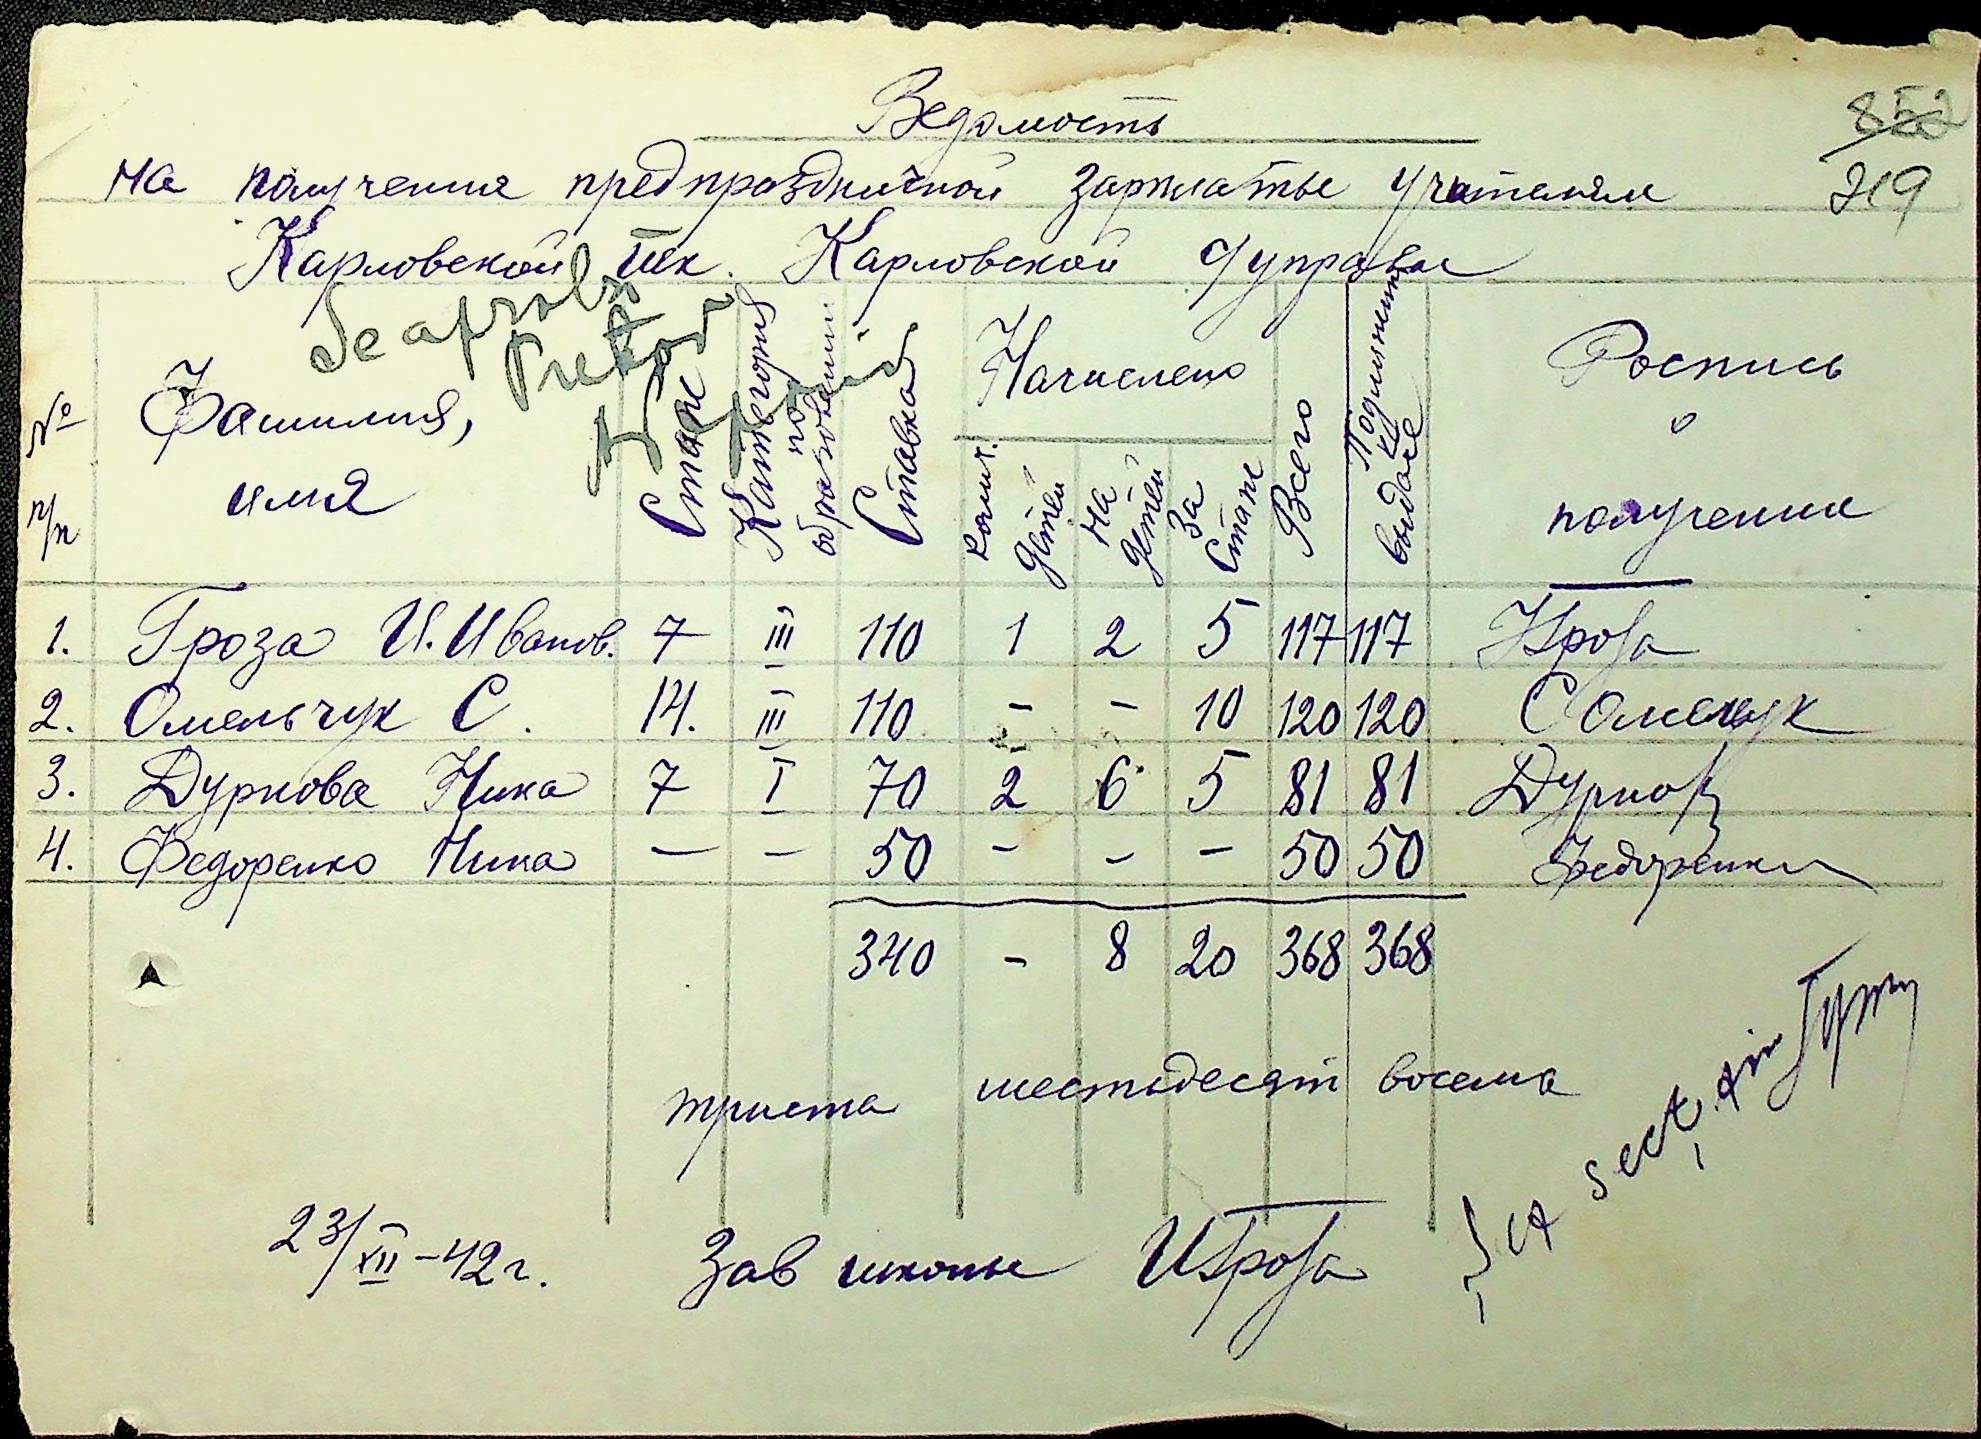 Ведомость
852
319
на получения предпраздничной зарплаты учителям
Карловской шк. Карловской Управы
Se aprobă
Pretor
№ п/п
Фамилия, имя
Стаж
Категория по образовании
Ставка
Начислено
колич. детей
на детей
за стаж
Всего
Подлежит к выдаче
Роспись о получении
1. Гроза И. Иванов. 7 III 110 1 2 5 117 117 ИГроза
2. Омельчук С. 14. III 110 - - 10 120 120 С Омельчук
3. Дурнова Ника 7 I 70 2 6 5 81 81 Дурнов
4. Федоренко Нина — — 50 - - - 50 50 Федоренко
340 - 8 20 368 368
триста шестьдесят восемь
Șef sect. fin
23/XII-42г. Зав школы ИГроза